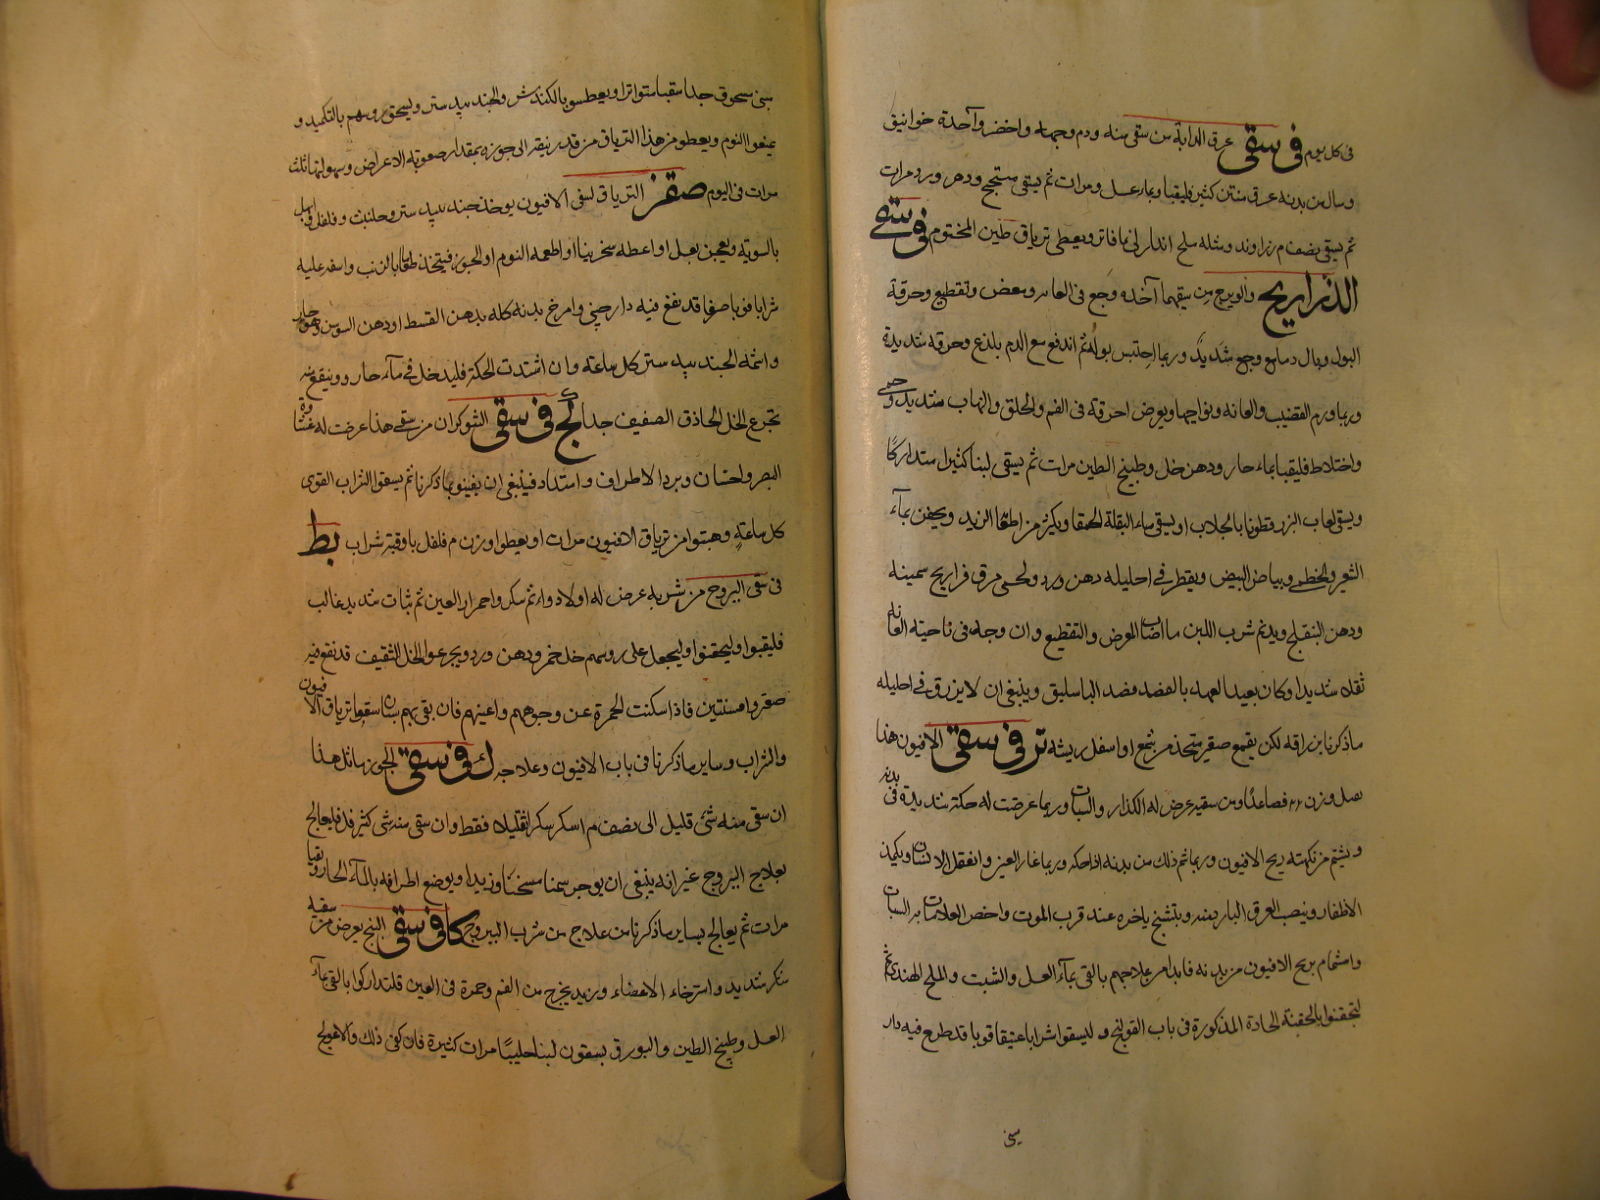 فى كل يوم فى سقى عرق الدابة من سقى منه ورم وجهه واخضر وآخذه خوانيق
وسال من بدنه عرق منتن كثير فليقيا وبماء عسل ومرات ثم يسقى
ثم يسقى نصف م زراوند ومثله ملح اندرانى بماء فاتر ويعطى ترياق طين المختوم فى سقى
الذراريح من سقيهما آخذه وجع فى العانه ومغص وتقطيع وحرقة
البول وبال دما مع وجع شديد وربما احتبس بوله ثم اندفع مع الدم بلذع وحرقه شديدة
وربما ورم القضيب والعانه ونواحيها ويعرض احرقة فى الفم والحلق والتهاب شديد وحمى
واختلاط فليقيا بماء حار ودهن خل وطبيخ التين مرات ثم يسقى لبنا كثيرا متداركا
ويسقى لعاب البزر قطونا بالجلاب او يسقى ماء البقلة الحمقا ويكثر من اطعام الزبد ويحقن بماء
الشعير والخطمى وبياض البيض ويقطر فى احليله دهن ورد ولحسى مرق فراريج سمينه
ودهن البنفسج ويدم شرب اللبن ما اصاب المرض والتقطيع وان وجد فى ناحيته العانه
ثقلا شديدا وكان بعيد العهد بالفصد فصد الباسليق وينبغى ان لا يزرق فى احليله
ماذكرنا بزراقه لكن بقمع صغير متخذ من شمع او اسفل ريشه تر فى سقى الافيون هذا
وزن ٢م فصاعدا ومن سقيه عرض له الكزاز والسبات وربما عرضت له حكة شديدة فى بدنه
ويشتم من نكهته ريح الافيون وربما شم ذلك من بدنه اذا حكه وربما غار العين وانعقل اللسان ويكمد
الاظفار وينصب العرق البارد منه ويتشنج باخره عند قرب الموت واخص العلامات به السبات
واشتمام بريح الافيون من بدنه فابدا من علاجهم بالقى بماء العسل والشبت والملح الهندى ثم
لتحقنوا بالحقنة الحادة المذكورة فى باب القولنج وليسقوا شرابا عتيقا قويا قد طرح فيه دار
صينى
صينى مسحوق جدا سقيا متواترا ويعطسو بالكندش والجندبيدستر ويسخن روسهم بالتكميد و
يمنعوا النوم ويعطو من هذا الترياق من قدر نبقه الى جوزه بمقدار صعوبة الاعراض وسهولتها ثلث
مرات فى اليوم صفة الترياق لسقى الافيون يوخذ جندبيدستر وحلتيت وفلفل وابهل
بالسويه ويعجن بعسل او اعطه سخرينا او اطعمه الثوم او الجوز فيتخذ طعاما بالزيت واسقه عليه
شرابا قويا صرفا قد نقع فيه دارچينى وامرخ بدنه كله بدهن القسط او دهن السوسن وهو حار
واشمه الجندبيدستر كل ساعة وان اشتدت الحكة فليدخل فى ماء حار وينفع منه
تجرع الخل الحاذق الصفيف جدا يج فى سقى الشوكران من سقى هذا عرضت له غشاوة
البصر واختناق وبرد الاطراف وامتداد فينبغى ان يقيئو بما ذكرنا ثم يسقوا الشراب القوى
كل ساعة من ترياق الافيون مرات او يعطوا وزن م فلفل باوقية شراب يط
فى سقى اليبروح من شربه عرض له اولا دوار ثم سكر واحمرار العين ثم سبات شديد غالب
فليقيوا وليحقنوا وليجعل على روسهم خل خمر ودهن ورد ويجرعوا الخل الثقيف قد نقع فيه
صعتر وافسنتين فاذا سكنت الحمرة عن وجوههم واعينهم فان بقى بهم سبات سقوا ترياق الافيون
والشراب وساير ماذكرنا فى باب الافيون وعلاجه ك فى سقى الجوز ماثل هذا
ان سقى منه شئ قليل الى نصف م اسكر سكرا ثقيلا فقط وان سقى منه شى كثير قتل فليعالج
بعلاج اليبروح غير انه ينبغى ان يوجر سمنا مسخنا وزبدا ويوضع اطرافه بالماء الحار ويقيا
مرات ثم يعالج بساير ماذكرنا من علاج من شرب اليبروح كا فى سقى البنج يعرض من سقيه
سكر شديد واسترخاء الاعضاء وزبد يخرج من الفم وحمرة فى العين فلتداركوا بالقى بماء
العسل وطبيخ التين والبورق يسقون لبنا حليبا مرات كثيرة فان كفى ذلك والا عولج